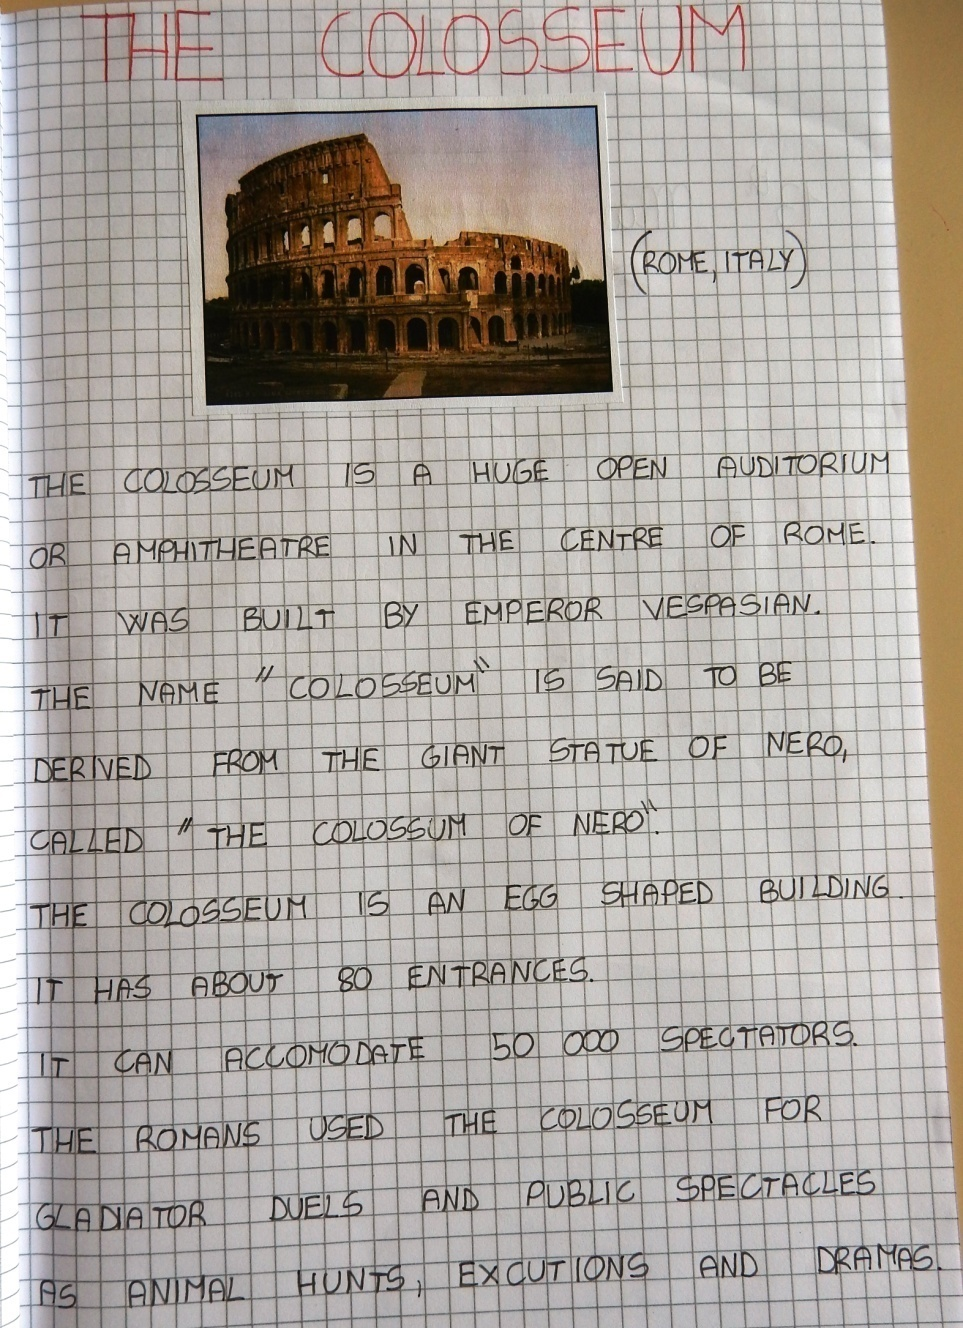 THE COLOSSEUM
(ROME, ITALY)
THE COLOSSEUM IS A HUGE OPEN AUDITORIUM
OR AMPHITHEATRE IN THE CENTRE OF ROME.
IT WAS BUILT BY EMPEROR VESPASIAN.
THE NAME "COLOSSEUM" IS SAID TO BE
DERIVED FROM THE GIANT STATUE OF NERO,
CALLED "THE COLOSSUM OF NERO".
THE COLOSSEUM IS AN EGG SHAPED BUILDING.
IT HAS ABOUT 80 ENTRANCES.
IT CAN ACCOMODATE 50 000 SPECTATORS.
THE ROMANS USED THE COLOSSEUM FOR
GLADIATOR DUELS AND PUBLIC SPECTACLES
AS ANIMAL HUNTS, EXCUTIONS AND DRAMAS.